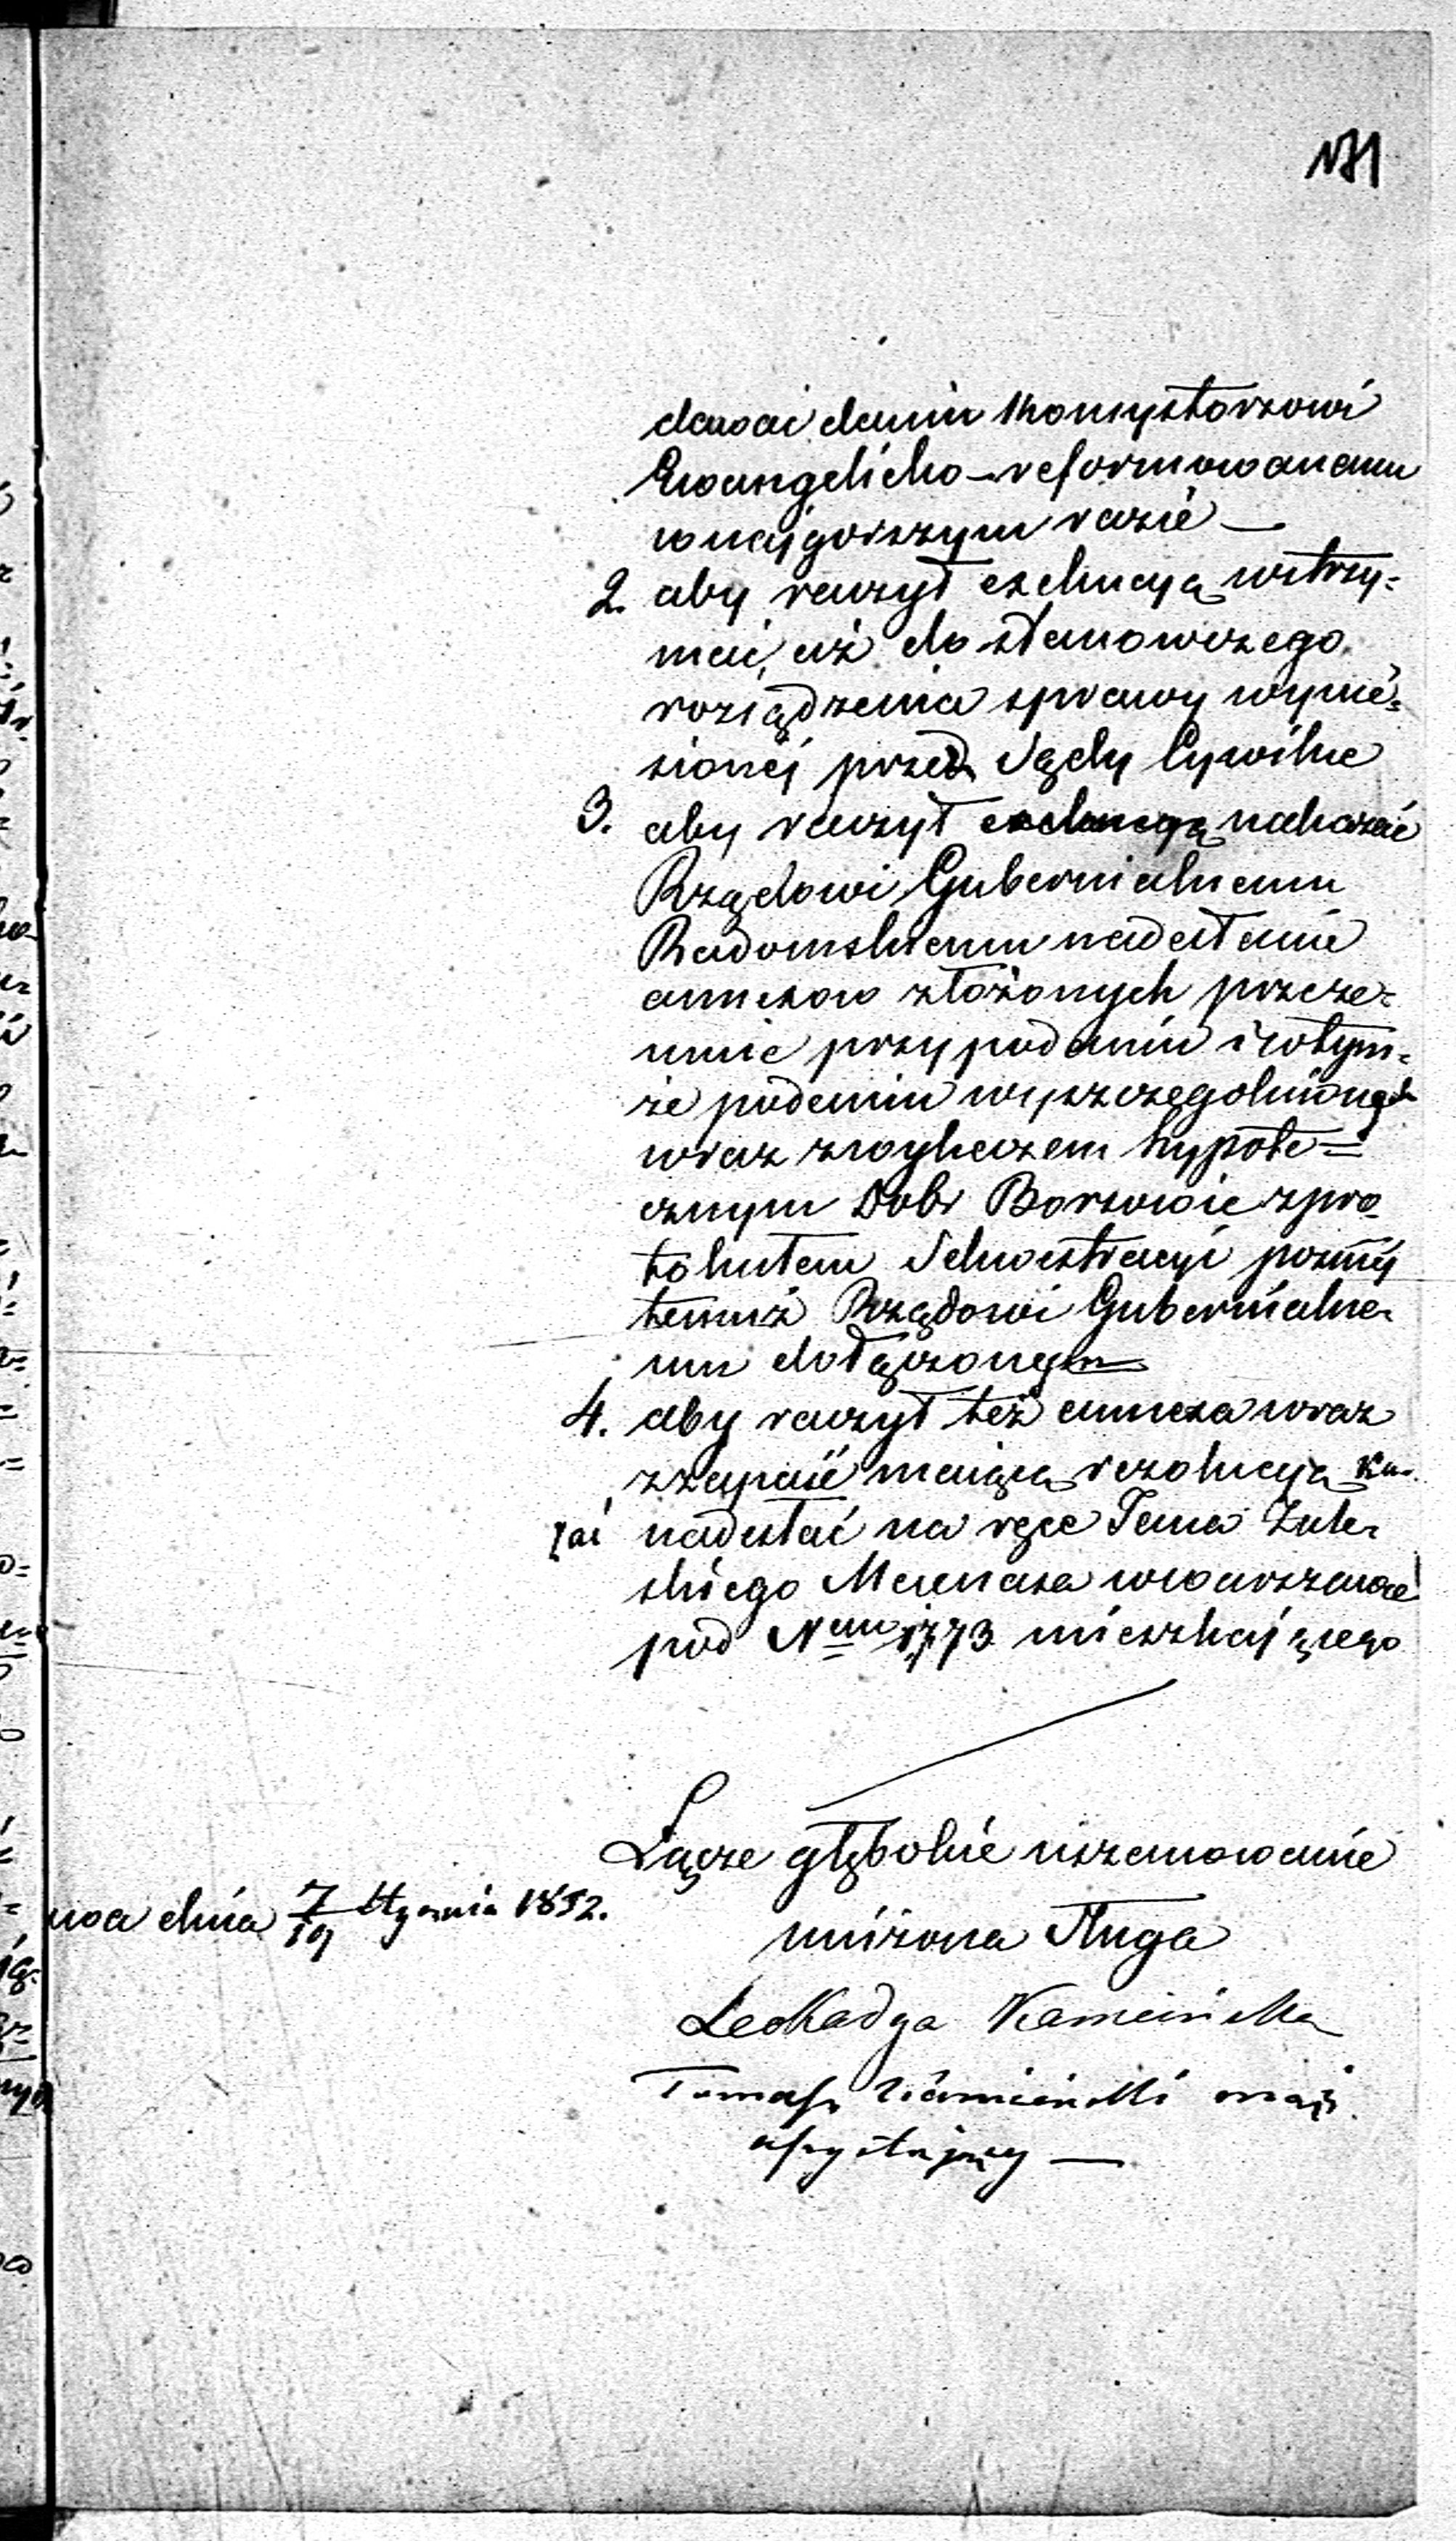 171
dawać daniu Konsystorzowi
Ewangelicko-reformowanemu
w najgorszym razie —
2. aby raczył exekucyą wstrzy=
mać, aż do stanowczego
rozsądzenia sprawy wynie=
sionej przed Sądy Cywilne
3. aby raczył nakazać
Rządowi Gubernialnemu
Radomskiemu nadesłanie
annexow złożonych przeze=
mnie przy podaniu i w tym=
że podaniu wyszczególnionych
wraz z wykazem hypote=
cznym Dobr Borszowice z pro
tokułem Sekwestracyi
temuż Rządowi Gubernialne=
mu dołączonym
4. aby raczył też annexa wraz
zzapaść maiącą rezolucyą Ka=
zać nadesłać na ręce Pana Zule=
skiego Mecenasa w Warszawie
pod Nem 1773 mieszkającego
Łącze głębokie uszanowanie
dnia 7/19 Stycznia 1852.
uniżona Sługa
Leokadya Kamieńska
Tomasz Kamieński mąż
assystujący —